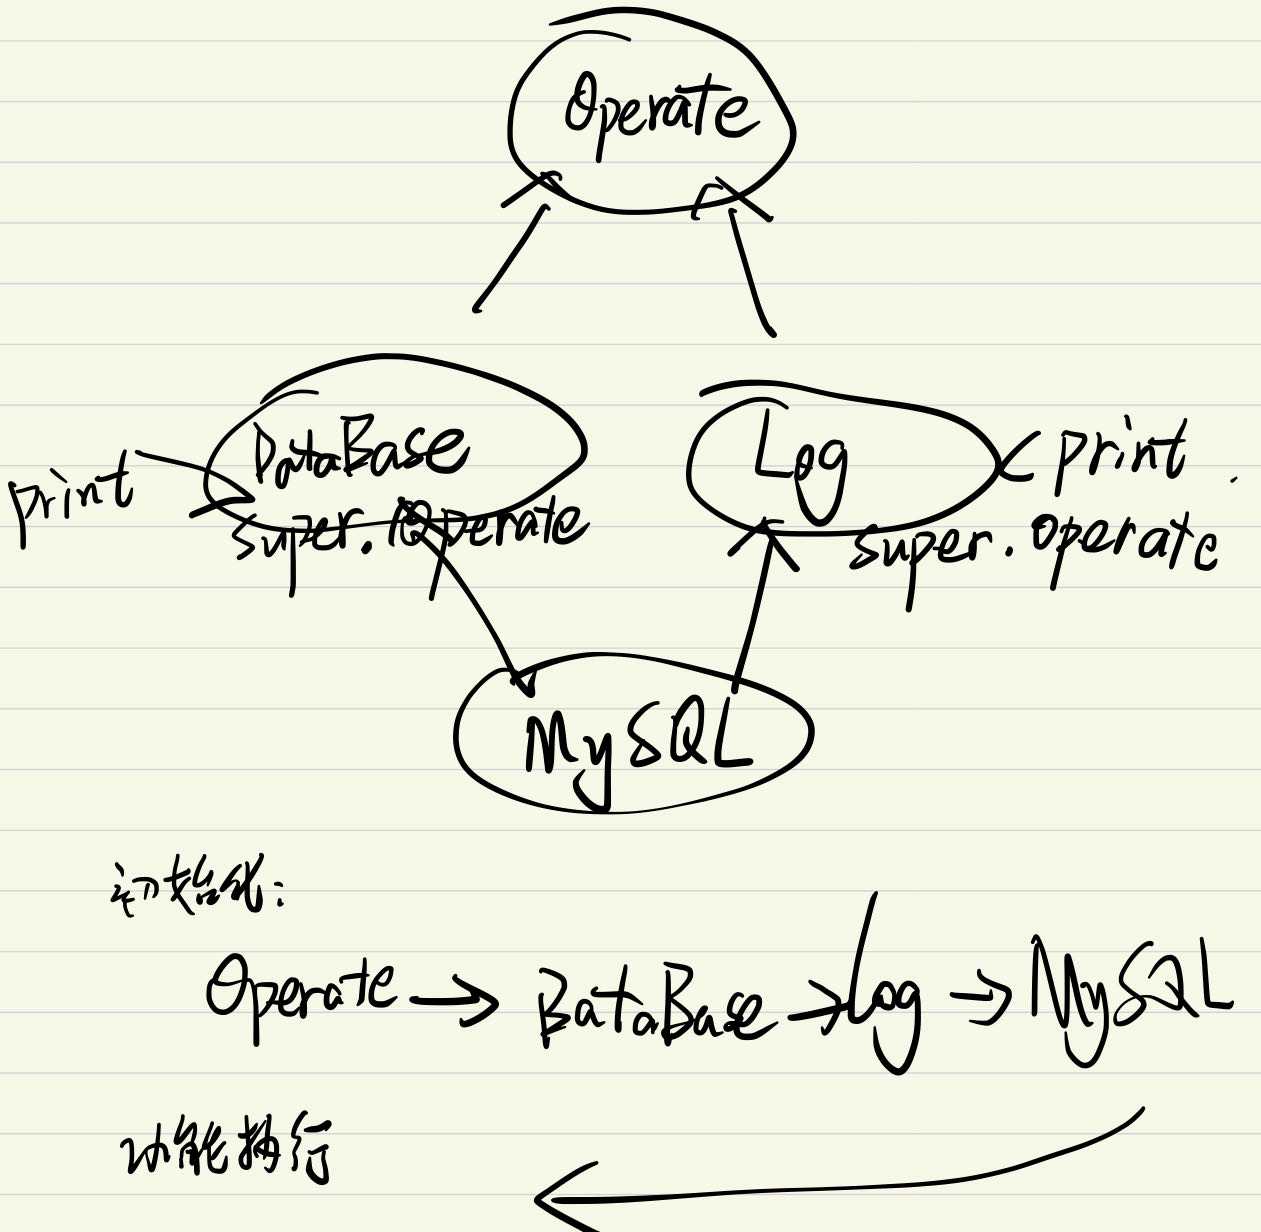 Operate
DataBase
Log
print
print
super.Operate
super.operate
MySQL
初始化:
Operate → BataBase → Log → MySQL
功能执行